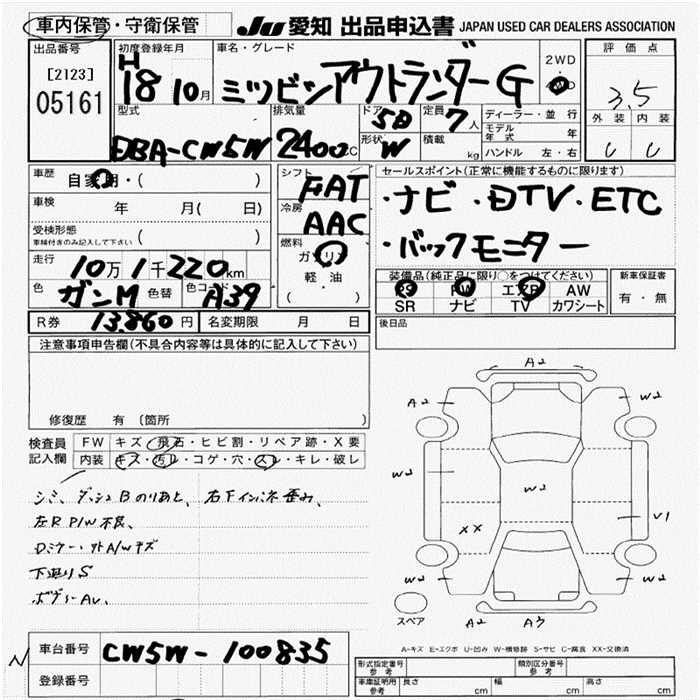 車内保管・守衛保管 JU 愛知 出品申込書 JAPAN USED CAR DEALERS ASSOCIATION
出品番号 初度登録年月 車名・グレード 2WD 評価点
[2123] H
05161 18 10月 ミツビシアウトランダーG 4WD 3.5
外装 内装
型式 排気量 ドア 5D 定員 7人 ディーラー・並行
モデル年式 年
DBA-CW5W 2400cc 形状 W 積載 kg ハンドル 左・右
車歴 自家用・( ) シフト FAT セールスポイント(正常に機能するものに限ります)
車検 年 月( 日) 冷房 AAC ・ナビ ・DTV・ETC
受検形態 ( )
車検付きのみ記入して下さい
燃料 ガソリン ・バックモニター
走行 10万1千220km 軽・油
( )
装備品(純正品に限り○をつけてください) 新車保証書
色 ガンM 色替 色コード A39 PS PW エアB AW 有・無
SR ナビ TV カワシート
R券 13,860円 名変期限 月 日 後日品
注意事項申告欄(不具合内容等は具体的に記入して下さい)
修復歴 有 (箇所 )
検査員 FW キズ・飛石・ヒビ割・リペア跡・X要
記入欄 内装 キズ・汚レ・コゲ・穴・スレ・キレ・破レ
シミ、ダッシュBのりあと、右Fインネ歪み、
左R P/W不良、
Dミラー・リトA/Wキズ
下廻りS
ボディーAU、
A2
A2 W2
W2 W2 V1
XX
W2 W2
スペア A2 A3
A-キズ E-エクボ U-凹み W-補修跡 S-サビ C-腐食 XX-交換済
車台番号 CW5W-100835
登録番号
形式指定番号 参考 類別区分番号 参考
車庫証明用 参考 長さ cm 幅 cm 高さ cm